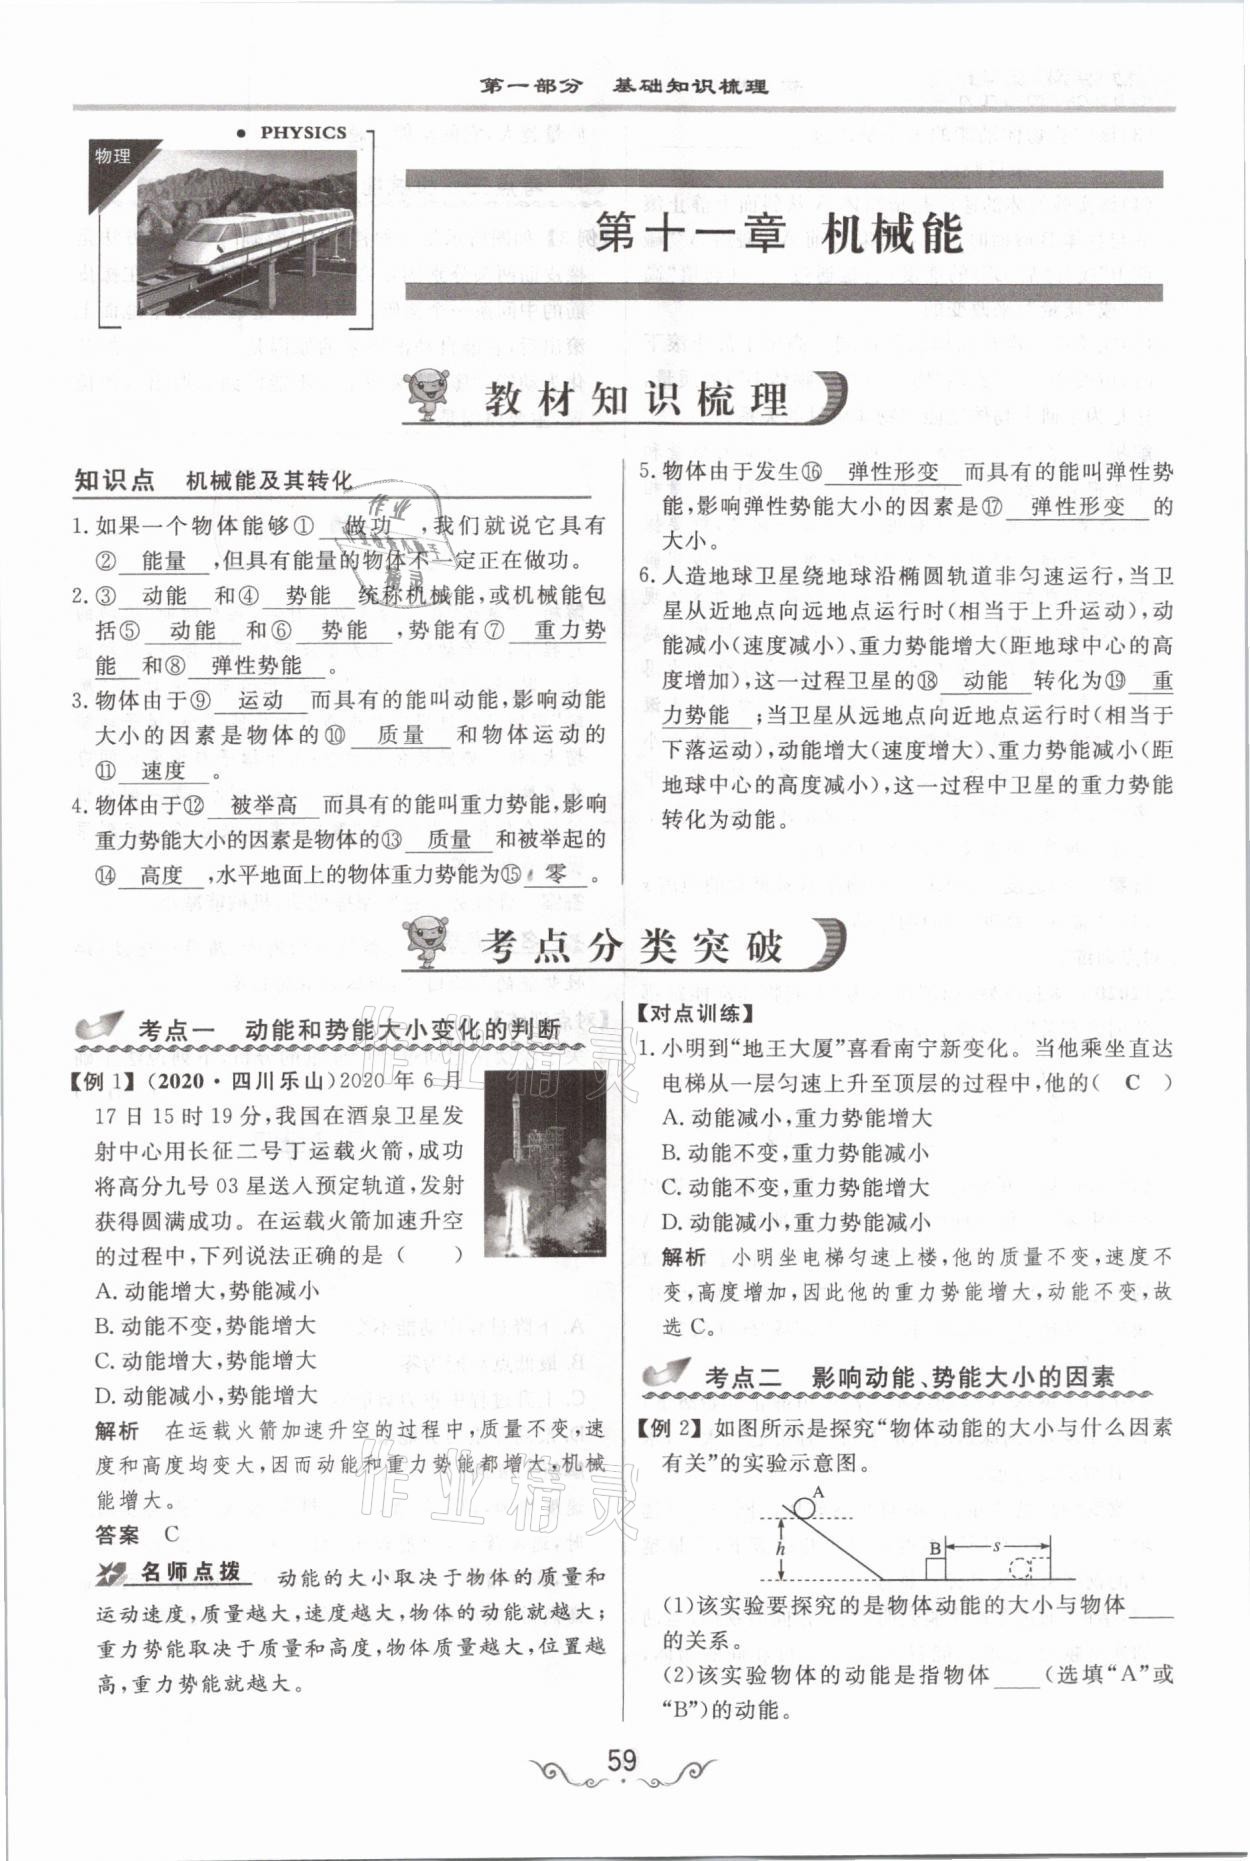 第一部分 基础知识梳理
PHYSICS
物理
第十一章 机械能
教材知识梳理
知识点 机械能及其转化
1. 如果一个物体能够① 做功 ,我们就说它具有
② 能量 ,但具有能量的物体不一定正在做功。
2. ③ 动能 和④ 势能 统称机械能,或机械能包
括⑤ 动能 和⑥ 势能 ,势能有⑦ 重力势
能 和⑧ 弹性势能 。
3. 物体由于⑨ 运动 而具有的能叫动能,影响动能
大小的因素是物体的⑩ 质量 和物体运动的
⑪ 速度 。
4. 物体由于⑫ 被举高 而具有的能叫重力势能,影响
重力势能大小的因素是物体的⑬ 质量 和被举起的
⑭ 高度 ,水平地面上的物体重力势能为⑮ 零 。
5. 物体由于发生⑯ 弹性形变 而具有的能叫弹性势
能,影响弹性势能大小的因素是⑰ 弹性形变 的
大小。
6. 人造地球卫星绕地球沿椭圆轨道非匀速运行,当卫
星从近地点向远地点运行时(相当于上升运动),动
能减小(速度减小)、重力势能增大(距地球中心的高
度增加),这一过程卫星的⑱ 动能 转化为⑲ 重
力势能 ;当卫星从远地点向近地点运行时(相当于
下落运动),动能增大(速度增大)、重力势能减小(距
地球中心的高度减小),这一过程中卫星的重力势能
转化为动能。
考点分类突破
考点一 动能和势能大小变化的判断
【例 1】(2020·四川乐山)2020 年 6 月
17 日 15 时 19 分,我国在酒泉卫星发
射中心用长征二号丁运载火箭,成功
将高分九号 03 星送入预定轨道,发射
获得圆满成功。在运载火箭加速升空
的过程中,下列说法正确的是 ( )
A. 动能增大,势能减小
B. 动能不变,势能增大
C. 动能增大,势能增大
D. 动能减小,势能增大
解析 在运载火箭加速升空的过程中,质量不变,速
度和高度均变大,因而动能和重力势能都增大,机械
能增大。
答案 C
名师点拨 动能的大小取决于物体的质量和
运动速度,质量越大,速度越大,物体的动能就越大;
重力势能取决于质量和高度,物体质量越大,位置越
高,重力势能就越大。
【对点训练】
1. 小明到“地王大厦”喜看南宁新变化。当他乘坐直达
电梯从一层匀速上升至顶层的过程中,他的( C )
A. 动能减小,重力势能增大
B. 动能不变,重力势能减小
C. 动能不变,重力势能增大
D. 动能减小,重力势能不变
解析 小明坐电梯匀速上楼,他的质量不变,速度不
变,高度增加,因此他的重力势能增大,动能不变,故
选 C。
考点二 影响动能、势能大小的因素
【例 2】如图所示是探究“物体动能的大小与什么因素
有关”的实验示意图。
A
h
B
s
(1)该实验要探究的是物体动能的大小与物体____
的关系。
(2)该实验物体的动能是指物体____(选填“A”或
“B”)的动能。
59
作业精灵
作业精灵
作业
精灵